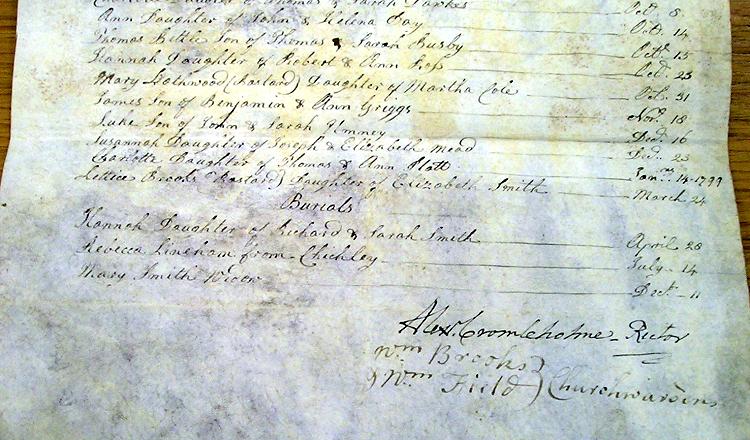 Daughter of Thomas & Sarah Parkes Octr. 8
Ann Daughter of John & Helena Day Octr. 14
Thomas Bittle Son of Thomas & Sarah Busby Octr. 15
Hannah Daughter of Robert & Ann Octr. 23
Mary (Bastard) Daughter of Martha Cole Octr. 31
James Son of Benjamin & Ann Griggs Novr. 18
Luke Son of John & Sarah Decr. 16
Susannah Daughter of Joseph & Elizabeth Mead Decr. 23
Charlotte Daughter of Thomas & Ann Platt Janry. 14-1799
Lettice Brooks (Bastard) Daughter of Elizabeth Smith March 24
Burials
Hannah Daughter of Richard & Sarah Smith April 28
Rebecca Lineham from Chichley July - 14
Mary Smith Widow Decr. - 11
Alexr. Cromleholme - Rector
Wm Brooks
Wm Field } Churchwardens